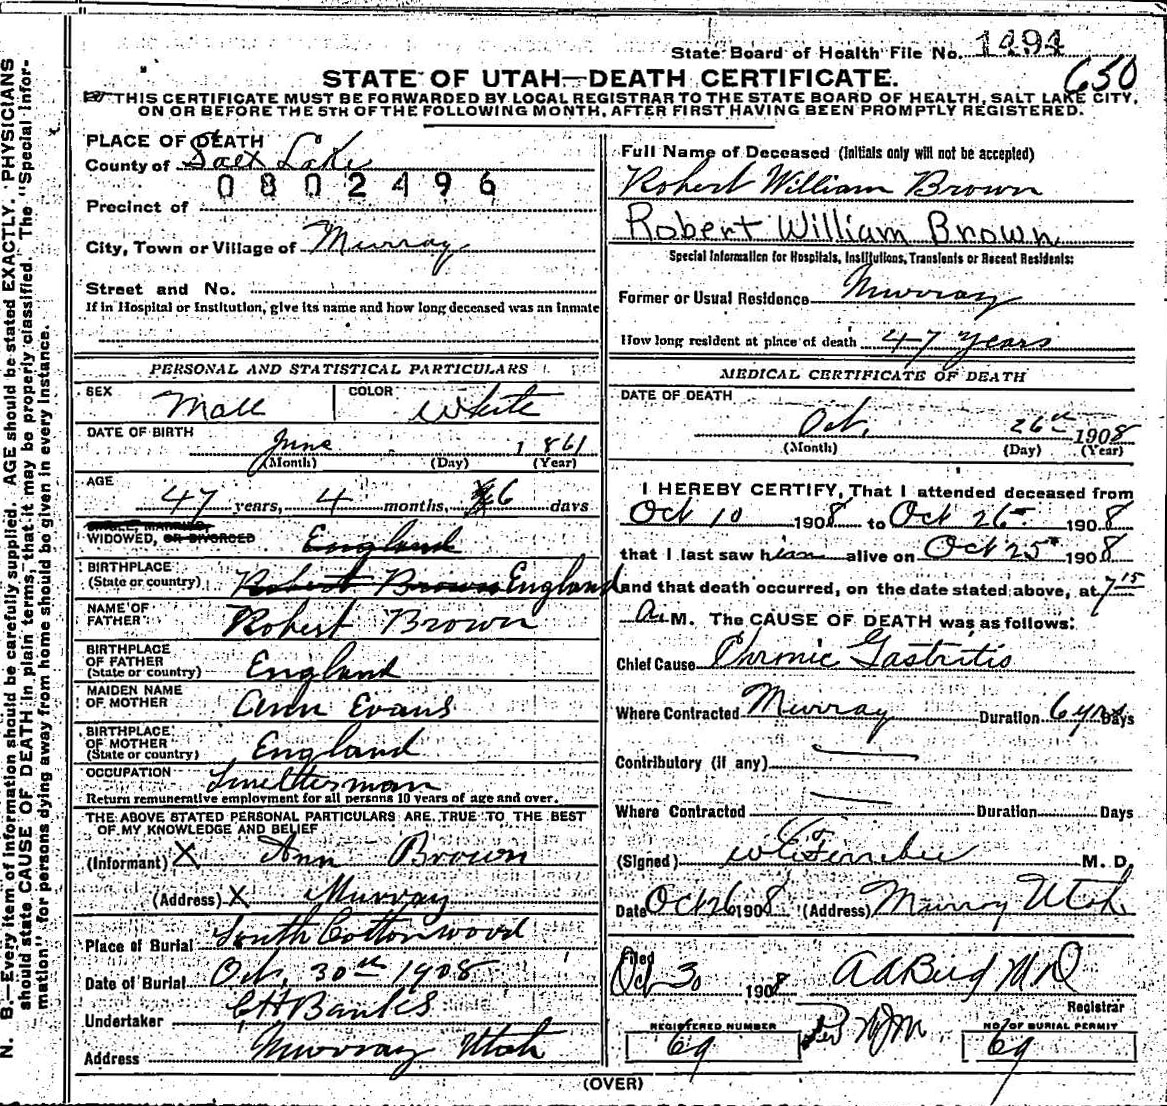 State Board of Health File No. 1494
650
STATE OF UTAH—DEATH CERTIFICATE.
THIS CERTIFICATE MUST BE FORWARDED BY LOCAL REGISTRAR TO THE STATE BOARD OF HEALTH, SALT LAKE CITY,
ON OR BEFORE THE 5TH OF THE FOLLOWING MONTH, AFTER FIRST HAVING BEEN PROMPTLY REGISTERED.
N. B.—Every item of information should be carefully supplied. AGE should be stated EXACTLY. PHYSICIANS
should state CAUSE OF DEATH in plain terms, that it may be properly classified. The "Special Infor-
mation" for persons dying away from home should be given in every instance.
PLACE OF DEATH
County of Salt Lake
0802496
Precinct of
City, Town or Village of Murray
Street and No.
If in Hospital or Institution, give its name and how long deceased was an inmate
PERSONAL AND STATISTICAL PARTICULARS
SEX Male COLOR White
DATE OF BIRTH
June 1861
(Month) (Day) (Year)
AGE
47 years, 4 months, 6 days
SINGLE, MARRIED,
WIDOWED, OR DIVORCED England
BIRTHPLACE
(State or country) Robert Brown England
NAME OF
FATHER Robert Brown
BIRTHPLACE
OF FATHER
(State or country) England
MAIDEN NAME
OF MOTHER Ann Evans
BIRTHPLACE
OF MOTHER
(State or country) England
OCCUPATION Smelterman
Return remunerative employment for all persons 10 years of age and over.
THE ABOVE STATED PERSONAL PARTICULARS ARE TRUE TO THE BEST
OF MY KNOWLEDGE AND BELIEF
(Informant) X Ann Brown
(Address) X Murray
Place of Burial South Cottonwood
Date of Burial Oct. 30th 1908
Undertaker C H Banks
Address Murray Utah
Full Name of Deceased (Initials only will not be accepted)
Robert William Brown
Robert William Brown
Special Information for Hospitals, Institutions, Transients or Recent Residents:
Former or Usual Residence Murray
How long resident at place of death 47 years
MEDICAL CERTIFICATE OF DEATH
DATE OF DEATH
Oct. 26th 1908
(Month) (Day) (Year)
I HEREBY CERTIFY, That I attended deceased from
Oct 10 1908 to Oct 26 1908
that I last saw him alive on Oct 25 1908
and that death occurred, on the date stated above, at 7 15
a. M. The CAUSE OF DEATH was as follows:
Chief Cause Chronic Gastritis
Where Contracted Murray Duration 6 yrs Days
Contributory (if any)
Where Contracted Duration Days
(Signed) M. D.
Date Oct 26 1908 (Address) Murray Utah
Filed
Oct 30 1908 M D
Registrar
Per
REGISTERED NUMBER
69
NO. OF BURIAL PERMIT
69
(OVER)